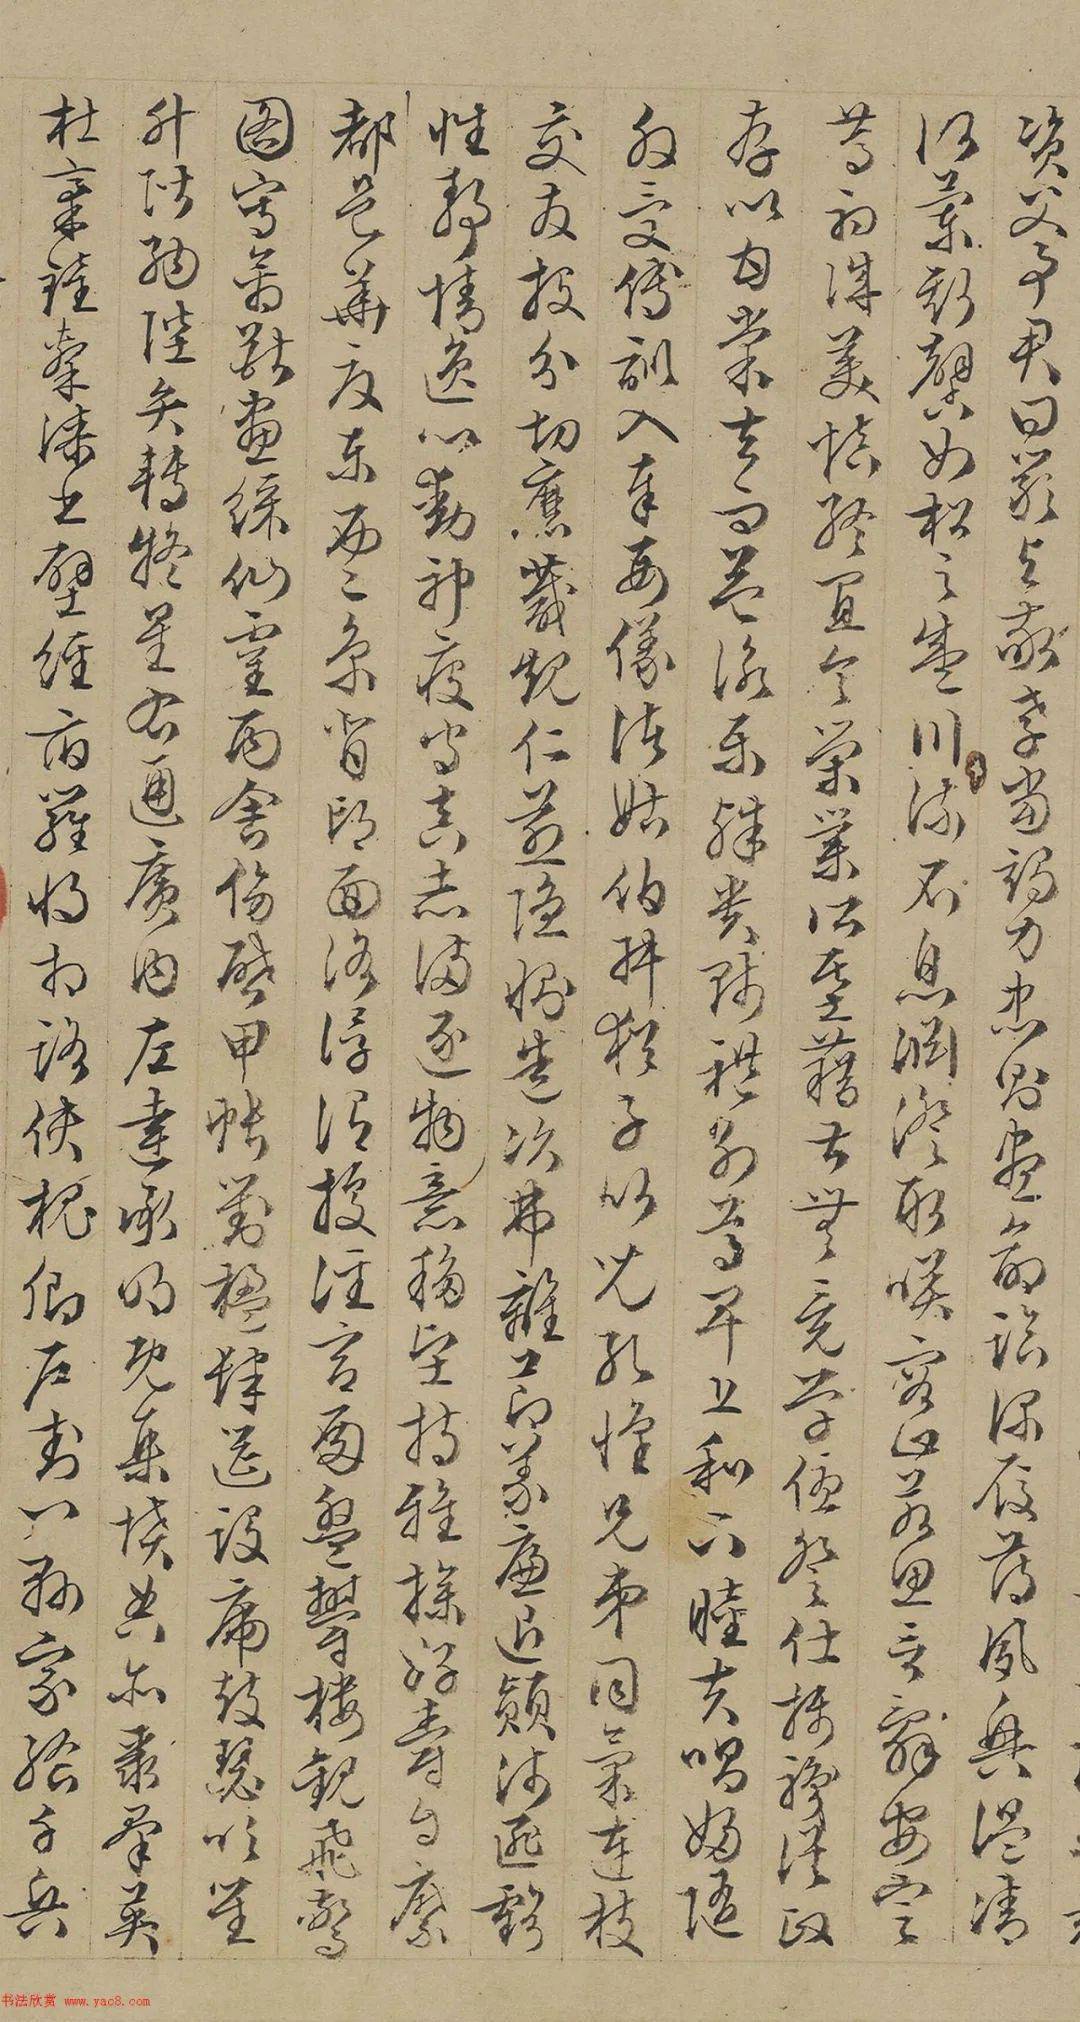 資父事君曰嚴與敬孝當竭力忠則盡命臨深履薄夙興溫凊
似蘭斯馨如松之盛川流不息淵澄取暎容止若思言辭安定
篤初誠美慎終宜令榮業所基藉甚無竟學優登仕攝職從政
存以甘棠去而益詠樂殊貴賤禮別尊卑上和下睦夫唱婦隨
外受傅訓入奉母儀諸姑伯叔猶子比兒孔懷兄弟同氣連枝
交友投分切磨箴規仁慈隱惻造次弗離節義廉退顛沛匪虧
性靜情逸心動神疲守真志滿逐物意移堅持雅操好爵自縻
都邑華夏東西二京背邙面洛浮渭據涇宮殿盤鬱樓觀飛驚
圖寫禽獸畫綵仙靈丙舍傍啟甲帳對楹肆筵設席鼓瑟吹笙
升階納陛弁轉疑星右通廣內左達承明既集墳典亦聚群英
杜稾鍾隸漆書壁經府羅將相路俠槐卿戶封八縣家給千兵
书法欣赏 www.yac8.com